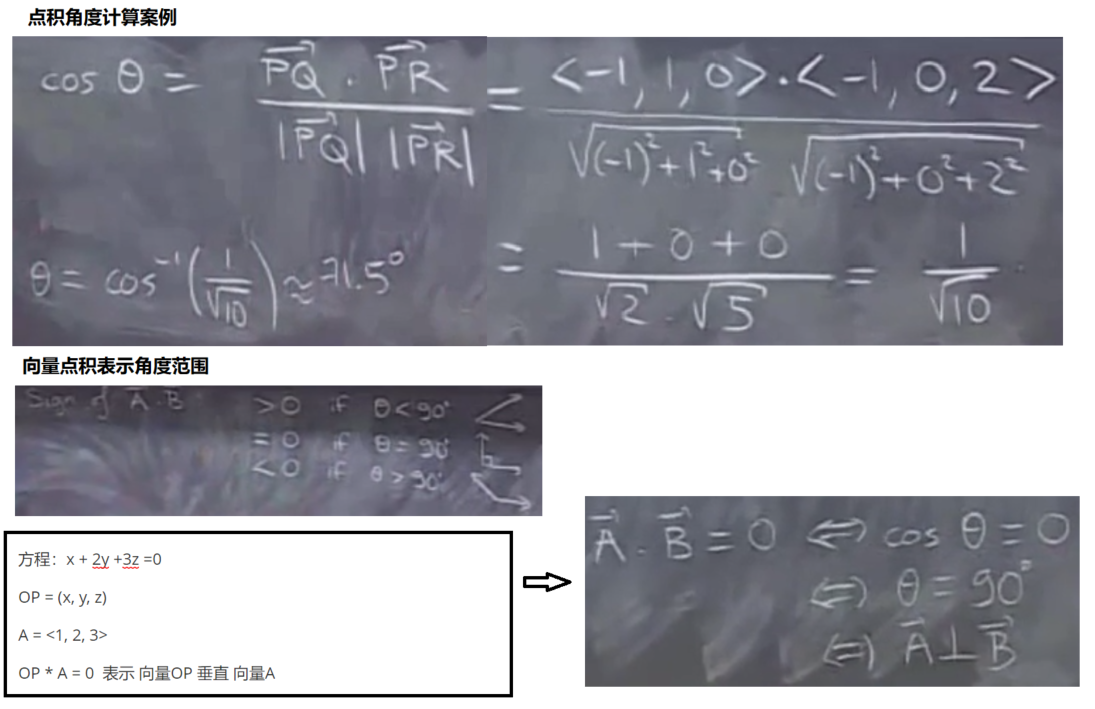 点积角度计算案例
cos θ = PQ · PR / |PQ| |PR| = <-1, 1, 0> · <-1, 0, 2> / √(-1)²+1²+0² √(-1)²+0²+2²
= 1+0+0 / √2 · √5 = 1 / √10
θ = cos⁻¹(1/√10) ≈ 71.5°
向量点积表示角度范围
Sign of A · B
>0 if θ < 90°
=0 if θ = 90°
<0 if θ > 90°
方程：x + 2y +3z =0
OP = (x, y, z)
A = <1, 2, 3>
OP * A = 0 表示 向量OP 垂直 向量A
A · B = 0 ⇔ cos θ = 0
⇔ θ = 90°
⇔ A ⊥ B